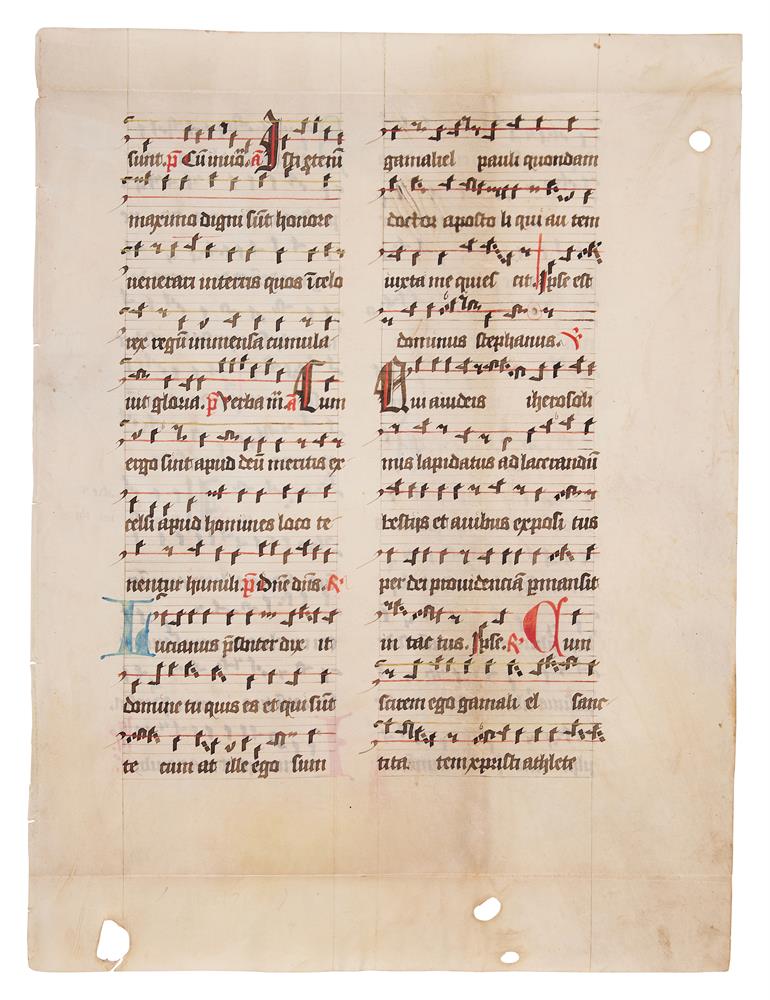 sunt. p̄ Cū inuoc̄. a̅ Isti q̄terū
maximo digni sūt honore
uenerari in terris quos ī celo
rex regū inmensa cumula
uit gloria. p̄ Verba m̄. a̅ Cum
ergo sint apud deū meritis ex
celsi apud homines loco te
nentur humili. p̄ Dn̄e dn̄s. R
Lucianus p̄sbiter dix it
domine tu quis es et qui sūt
te cum at ille ego sum
gamaliel pauli quondam
doctor aposto li qui au tem
iuxta me quies cit. Ipse est
dominus stephanus. V
Qui a iudeis iherosoli
mis lapidatus ad lacerandū
bestijs et auibus exposi tus
per dei prouidenciā p̄mansit
in tac tus. Ipse. R Cum
scirem ego gamali el sanc
tita tem xpristi athlete